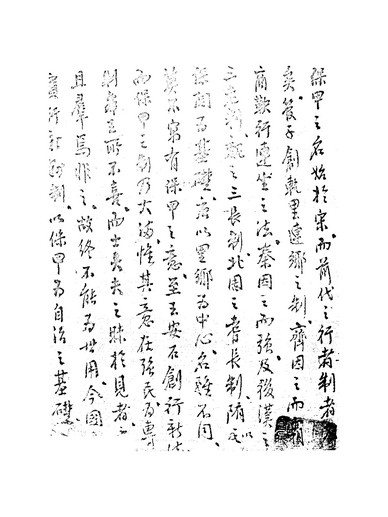 保甲之名始於宋而前代之行者制者
矣管子創軌里連鄉之制齊因之而霸
商鞅行連坐之法秦因之而強及後漢之
三老制魏之三長制北周之耆長制隋氏以
保閭為基礎唐以里鄉為中心名雖不同
莫不寓有保甲之意至王安石創行新法
而保甲之制乃大備惟其意在強民為
制
而士夫之昧於見者
且羣焉非之故終不能為世用今國
實行新制以保甲為自治之基礎